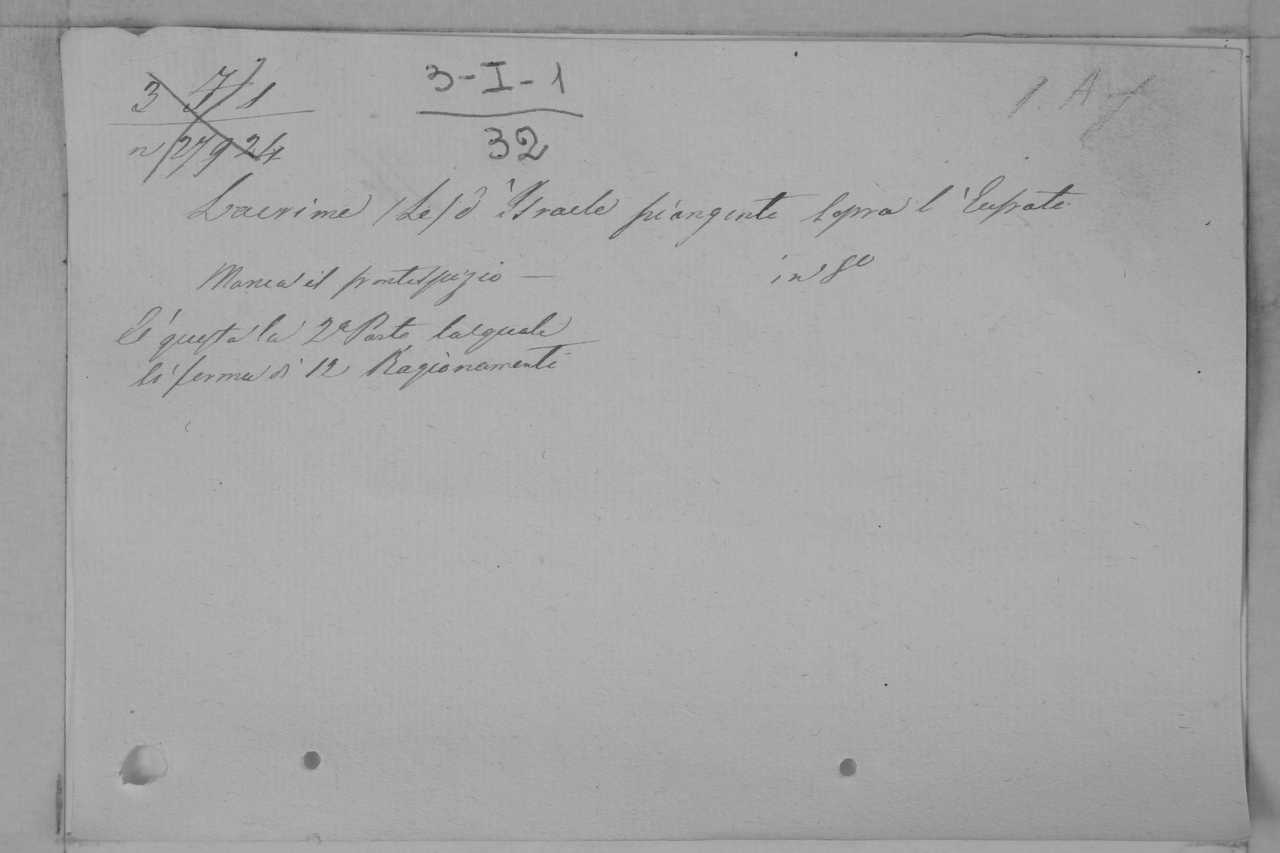 3-I-1
32
Lacrime (Le) d'Israele piangente sopra l'Eufrate
Manca il frontespizio — in 8º
È questa la 2ª Parte la quale
si ferma di 12 Ragionamenti